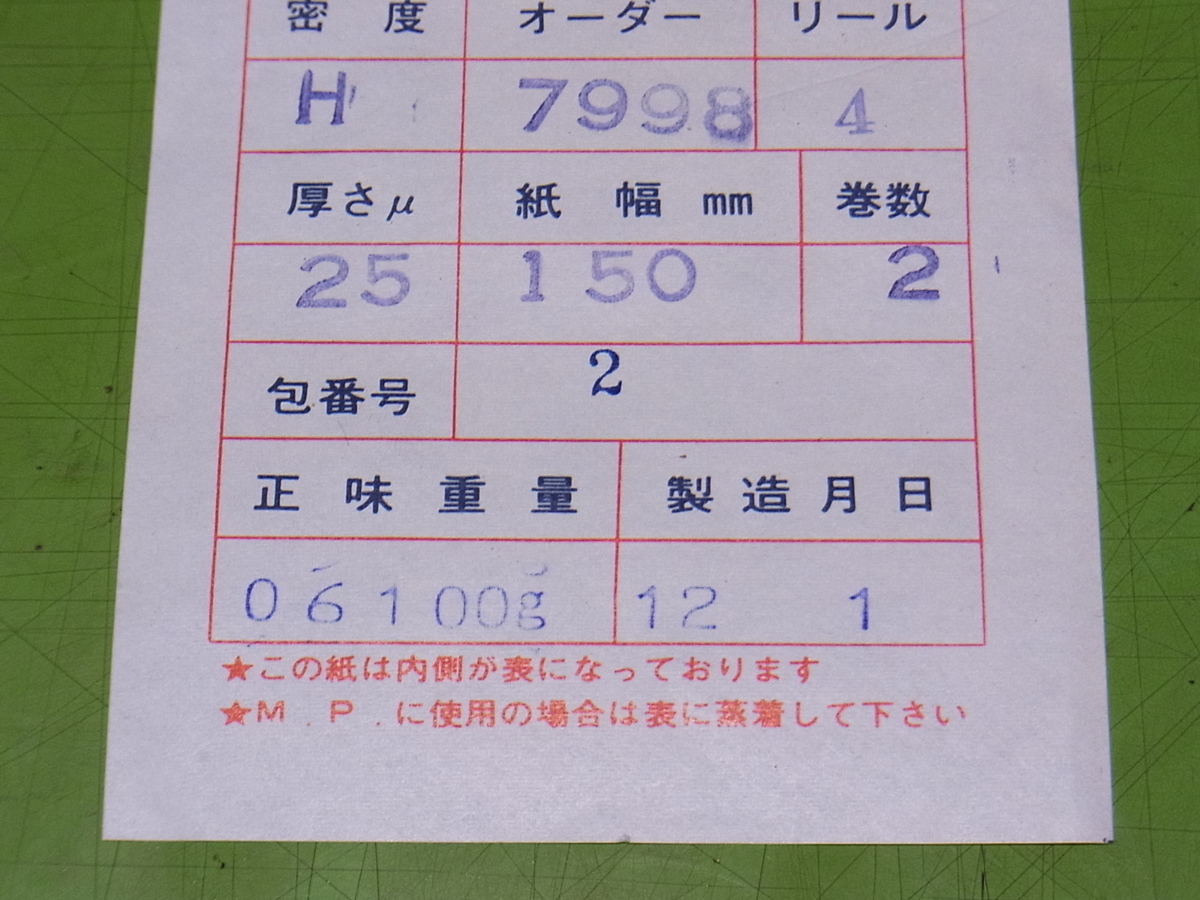 密度 オーダー リール
H 7998 4
厚さμ 紙幅 mm 巻数
25 150 2
包番号 2
正味重量 製造月日
06100g 12 1
★この紙は内側が表になっております
★M.P.に使用の場合は表に蒸着して下さい